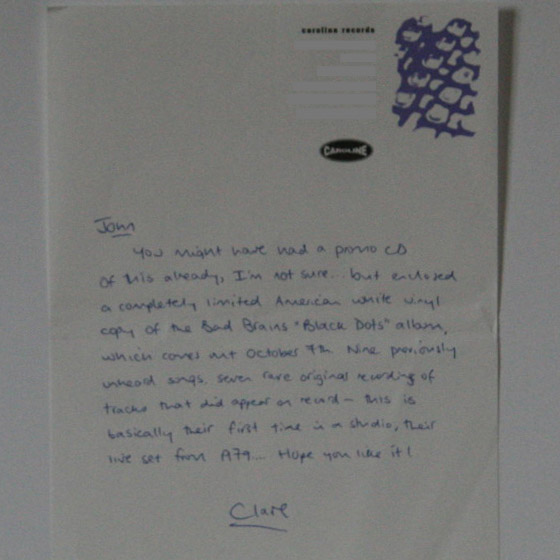 caroline records
CAROLINE
John
You might have had a promo CD
of this already, I'm not sure... but enclosed
a completely limited American white vinyl
copy of the Bad Brains "Black Dots" album,
which comes out October 7th. Nine previously
unheard songs, seven rare original recording of
tracks that did appear on record - this is
basically their first time in a studio, their
live set from
Hope you like it!
Clare